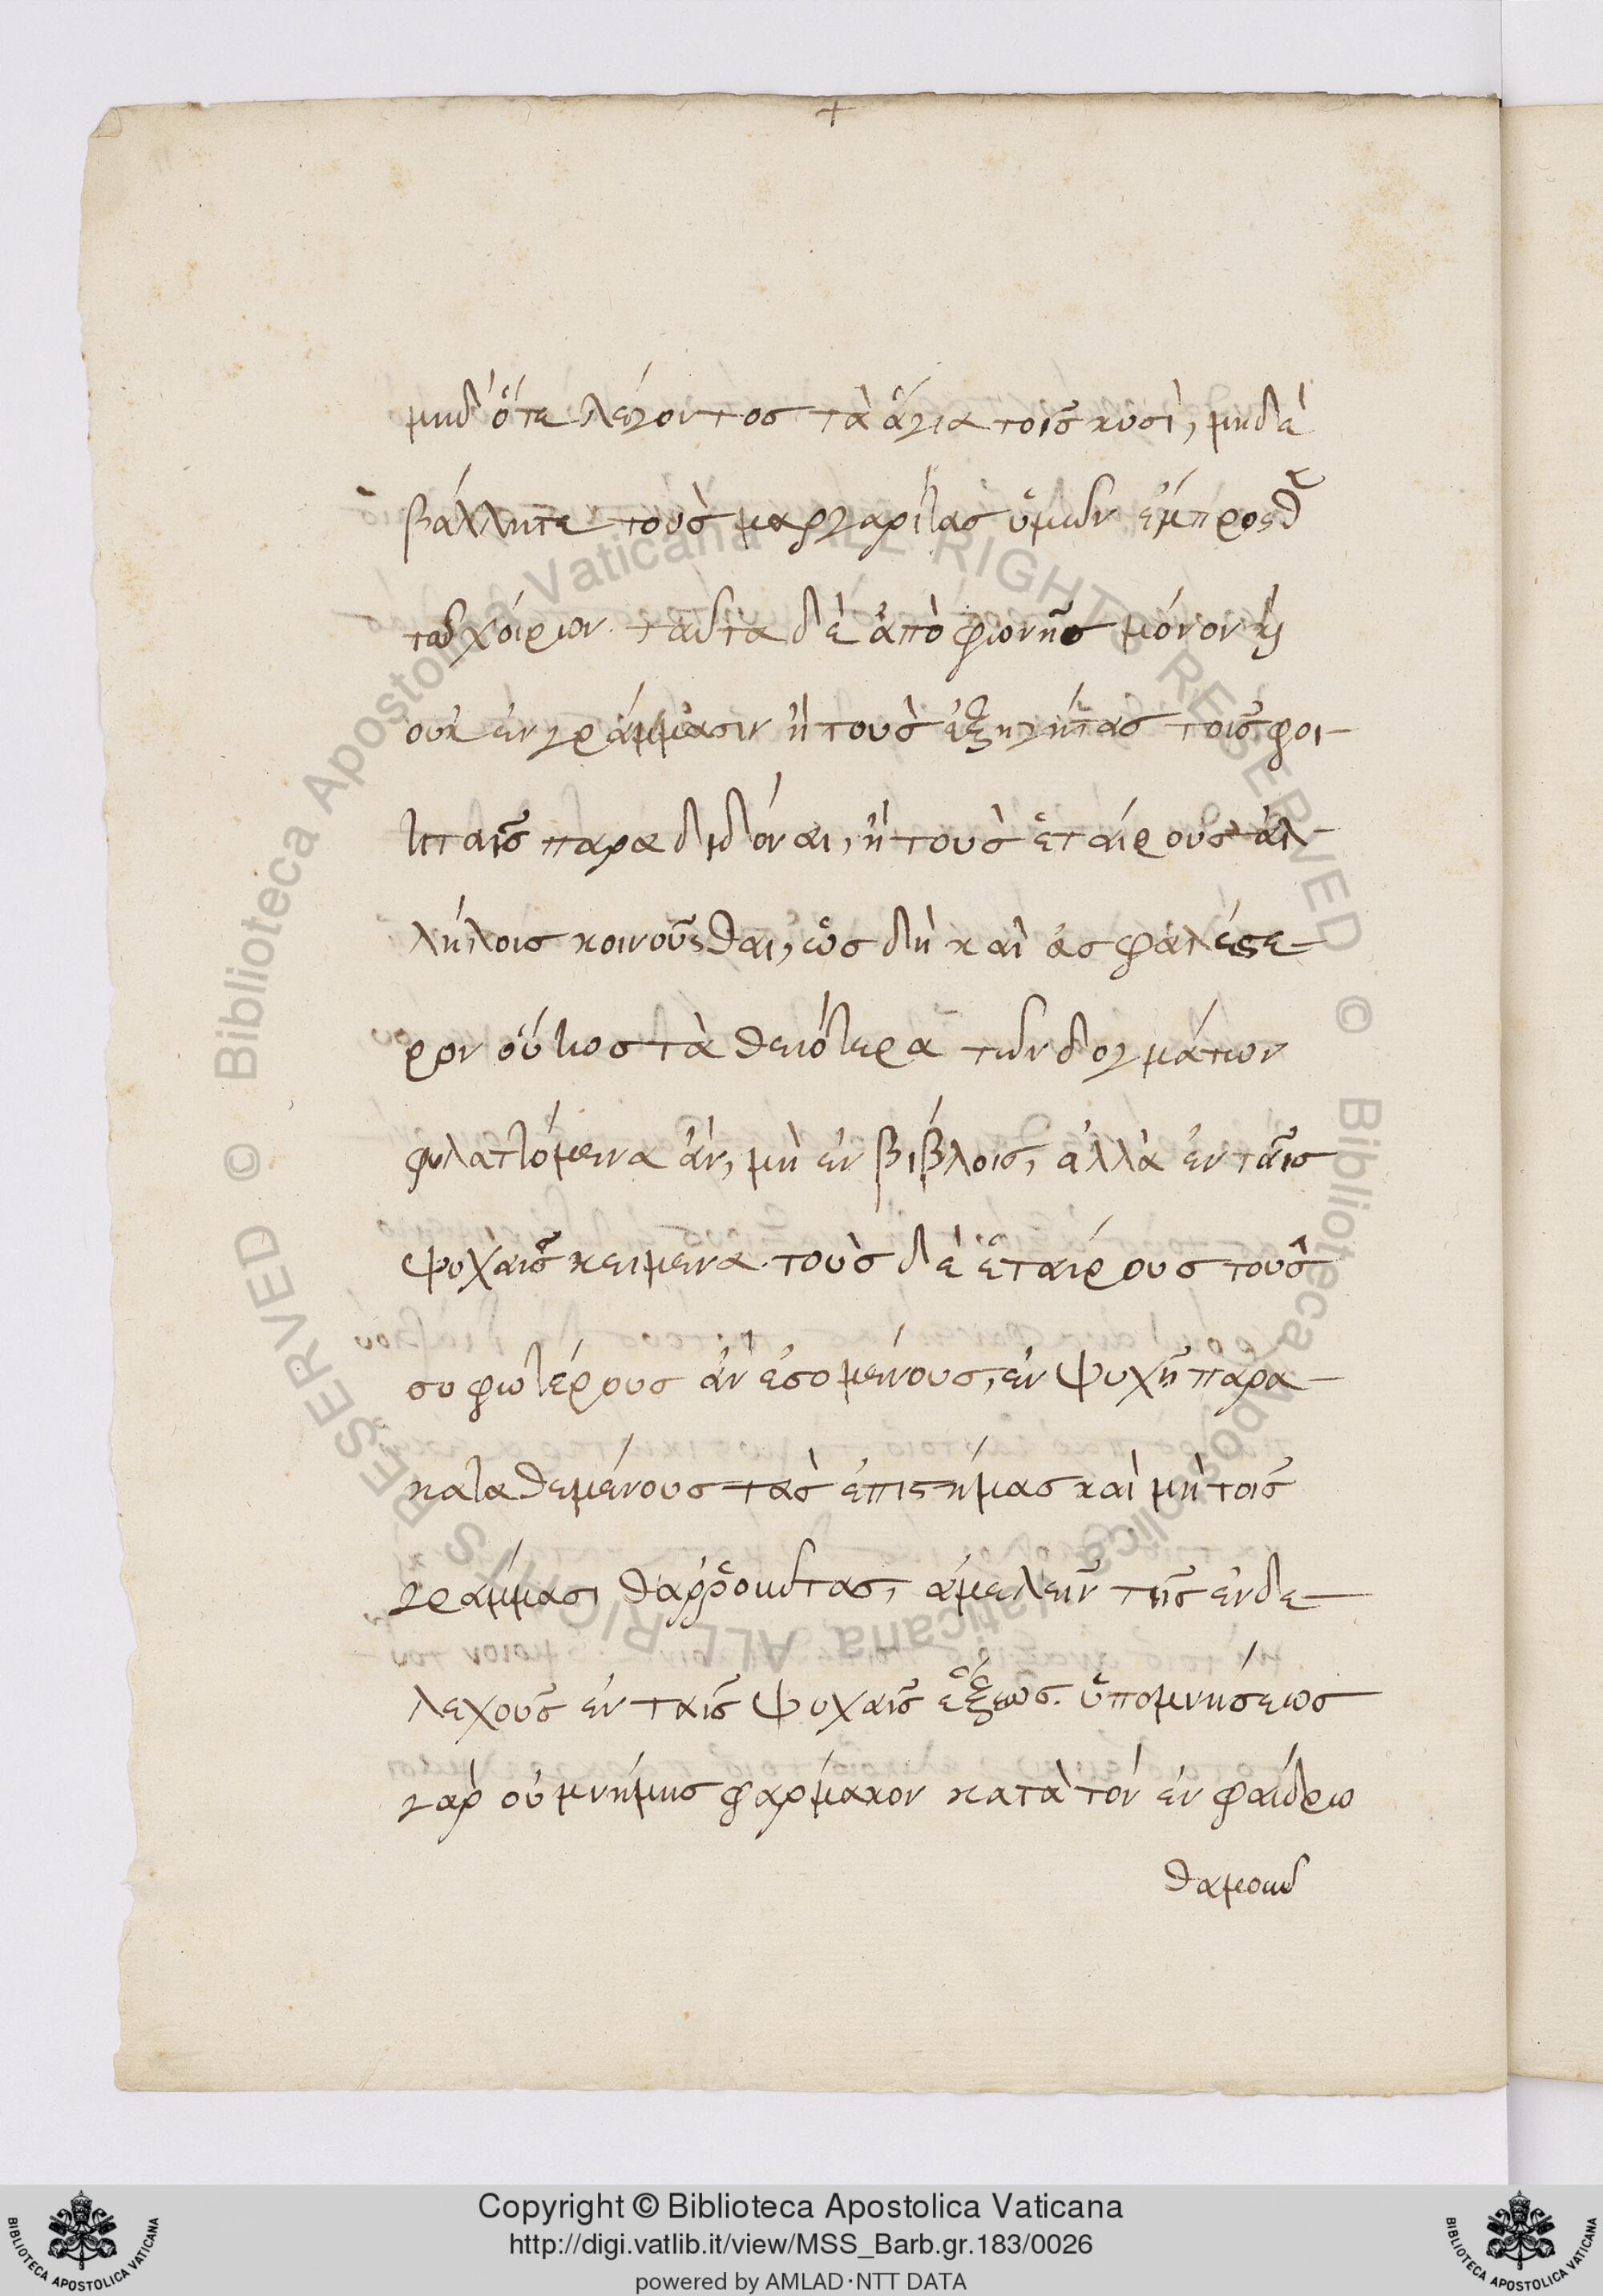 +
μηδ' ὅτε λέγοντος τὰ ἅγια τοῖς κυσὶ, μηδὲ
βάλλητε τοὺς μαργαρίτας ὑμῶν ἔμπροσθεν
τῶν χοίρων. ταῦτα δὲ ἀπὸ φωνῆς μόνον καὶ
οὐκ ἐν γράμμασιν ἢ τοὺς ἐξηγητὰς τοῖς φοι-
τηταῖς παραδιδόναι, ἢ τοὺς ἑταίρους ἀλ-
λήλοις κοινοῦσθαι, ὡς δὴ καὶ ἀσφαλέστε-
ρον οὕτως τὰ θειότερα τῶν δογμάτων
φυλαττόμενα ἂν, μὴ ἐν βίβλοις, ἀλλὰ ἐν ταῖς
ψυχαῖς κείμενα. τοὺς δὲ ἑταίρους τοὺς
σοφωτέρους ἂν ἐσομένους, ἐν ψυχῇ παρα-
καταθεμένους τὰς ἐπιστήμας καὶ μὴ τοῖς
γράμμασι θαρροῦντας, ἀμελεῖν τῆς ἐνδε-
λεχοῦς ἐν ταῖς ψυχαῖς ἕξεως. ὑπομνήσεως
γὰρ οὐ μνήμης φάρμακον κατὰ τὸν ἐν φαίδρω
θαμοῦν
© Biblioteca Apostolica Vaticana ALL RIGHTS RESERVED
© Biblioteca Apostolica Vaticana ALL RIGHTS RESERVED
Copyright © Biblioteca Apostolica Vaticana
http://digi.vatlib.it/view/MSS_Barb.gr.183/0026
powered by AMLAD·NTT DATA
BIBLIOTECA APOSTOLICA VATICANA
BIBLIOTECA APOSTOLICA VATICANA